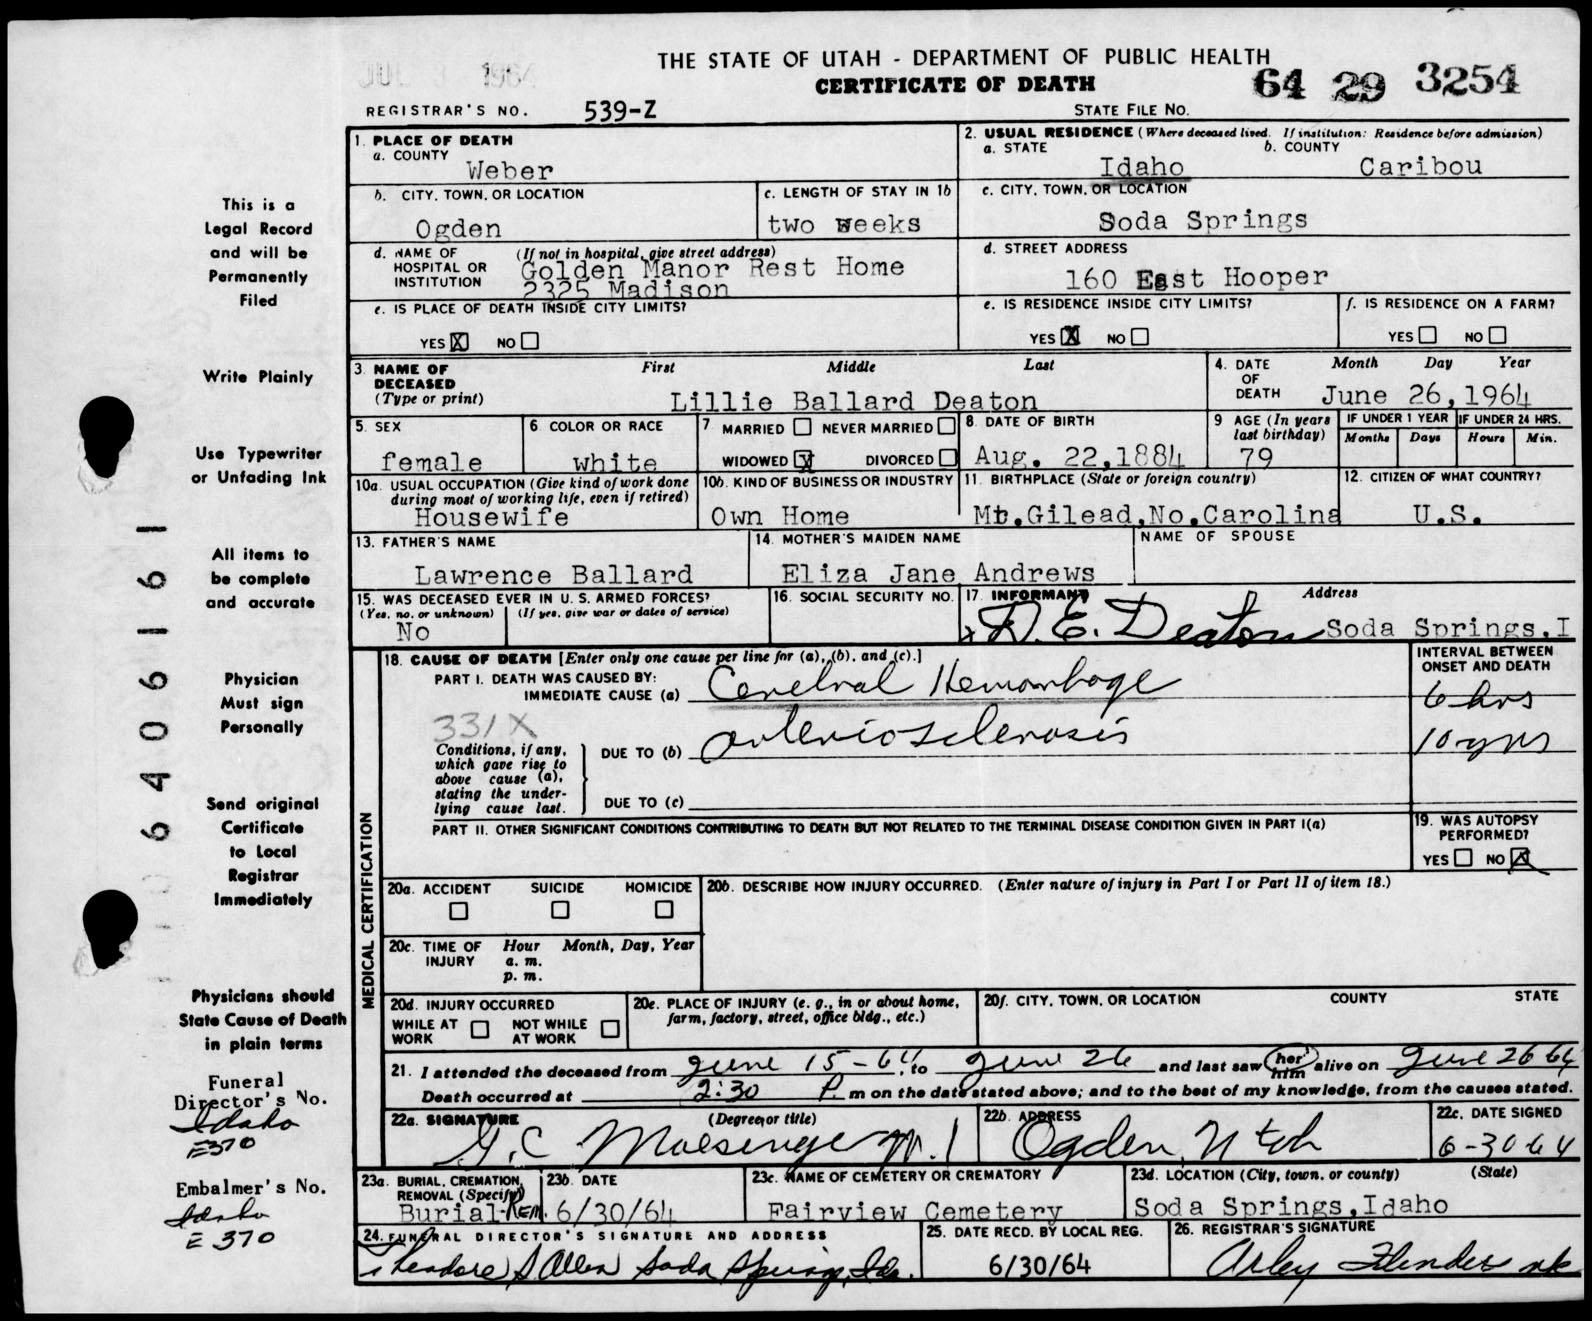 JUL 3 1964
THE STATE OF UTAH - DEPARTMENT OF PUBLIC HEALTH
CERTIFICATE OF DEATH
64 29 3254
REGISTRAR'S NO. 539-Z
STATE FILE NO.
This is a
Legal Record
and will be
Permanently
Filed
Write Plainly
Use Typewriter
or Unfading Ink
All items to
be complete
and accurate
Physician
Must sign
Personally
Send original
Certificate
to Local
Registrar
Immediately
Physicians should
State Cause of Death
in plain terms
Funeral
Director's No.
Idaho
E370
Embalmer's No.
Idaho
E 370
6406161
1. PLACE OF DEATH
a. COUNTY
Weber
2. USUAL RESIDENCE (Where deceased lived. If institution: Residence before admission)
a. STATE
Idaho
b. COUNTY
Caribou
b. CITY, TOWN, OR LOCATION
Ogden
c. LENGTH OF STAY IN 1b
two weeks
c. CITY, TOWN, OR LOCATION
Soda Springs
d. NAME OF HOSPITAL OR INSTITUTION
(If not in hospital, give street address)
Golden Manor Rest Home
2325 Madison
d. STREET ADDRESS
160 East Hooper
e. IS PLACE OF DEATH INSIDE CITY LIMITS?
YES X NO
e. IS RESIDENCE INSIDE CITY LIMITS?
YES X NO
f. IS RESIDENCE ON A FARM?
YES NO
3. NAME OF DECEASED
(Type or print)
First Middle Last
Lillie Ballard Deaton
4. DATE OF DEATH
Month Day Year
June 26, 1964
5. SEX
female
6. COLOR OR RACE
white
7 MARRIED NEVER MARRIED
WIDOWED X DIVORCED
8. DATE OF BIRTH
Aug. 22, 1884
9 AGE (In years last birthday)
79
IF UNDER 1 YEAR
Months Days
IF UNDER 24 HRS.
Hours Min.
10a. USUAL OCCUPATION (Give kind of work done during most of working life, even if retired)
Housewife
10b. KIND OF BUSINESS OR INDUSTRY
Own Home
11. BIRTHPLACE (State or foreign country)
Mt.Gilead,No.Carolina
12. CITIZEN OF WHAT COUNTRY?
U.S.
13. FATHER'S NAME
Lawrence Ballard
14. MOTHER'S MAIDEN NAME
Eliza Jane Andrews
NAME OF SPOUSE
15. WAS DECEASED EVER IN U. S. ARMED FORCES?
(Yes, no, or unknown) (If yes, give war or dates of service)
No
16. SOCIAL SECURITY NO.
17. INFORMANT Address
x D. E. Deaton Soda Springs, I
MEDICAL CERTIFICATION
18. CAUSE OF DEATH [Enter only one cause per line for (a), (b), and (c).]
INTERVAL BETWEEN ONSET AND DEATH
PART I. DEATH WAS CAUSED BY:
IMMEDIATE CAUSE (a) Cerebral Hemorrhage
6 hrs
331X
Conditions, if any, which gave rise to above cause (a), stating the underlying cause last.
DUE TO (b) arteriosclerosis
10 yrs
DUE TO (c)
PART II. OTHER SIGNIFICANT CONDITIONS CONTRIBUTING TO DEATH BUT NOT RELATED TO THE TERMINAL DISEASE CONDITION GIVEN IN PART I(a)
19. WAS AUTOPSY PERFORMED?
YES NO X
20a. ACCIDENT SUICIDE HOMICIDE
20b. DESCRIBE HOW INJURY OCCURRED. (Enter nature of injury in Part I or Part II of item 18.)
20c. TIME OF INJURY
Hour Month, Day, Year
a. m.
p. m.
20d. INJURY OCCURRED
WHILE AT WORK NOT WHILE AT WORK
20e. PLACE OF INJURY (e. g., in or about home, farm, factory, street, office bldg., etc.)
20f. CITY, TOWN, OR LOCATION COUNTY STATE
21. I attended the deceased from June 15-64, to June 26 and last saw her him alive on June 26 64
Death occurred at 2:30 P. m on the date stated above; and to the best of my knowledge, from the causes stated.
22a. SIGNATURE (Degree or title)
22b. ADDRESS
Ogden, Utah
22c. DATE SIGNED
6-30-64
23a. BURIAL, CREMATION, REMOVAL (Specify)
Burial-Rem.
23b. DATE
6/30/64
23c. NAME OF CEMETERY OR CREMATORY
Fairview Cemetery
23d. LOCATION (City, town, or county) (State)
Soda Springs, Idaho
24. FUNERAL DIRECTOR'S SIGNATURE AND ADDRESS
Theodore S Allen Soda Springs, Ida.
25. DATE RECD. BY LOCAL REG.
6/30/64
26. REGISTRAR'S SIGNATURE
Arley Flinders